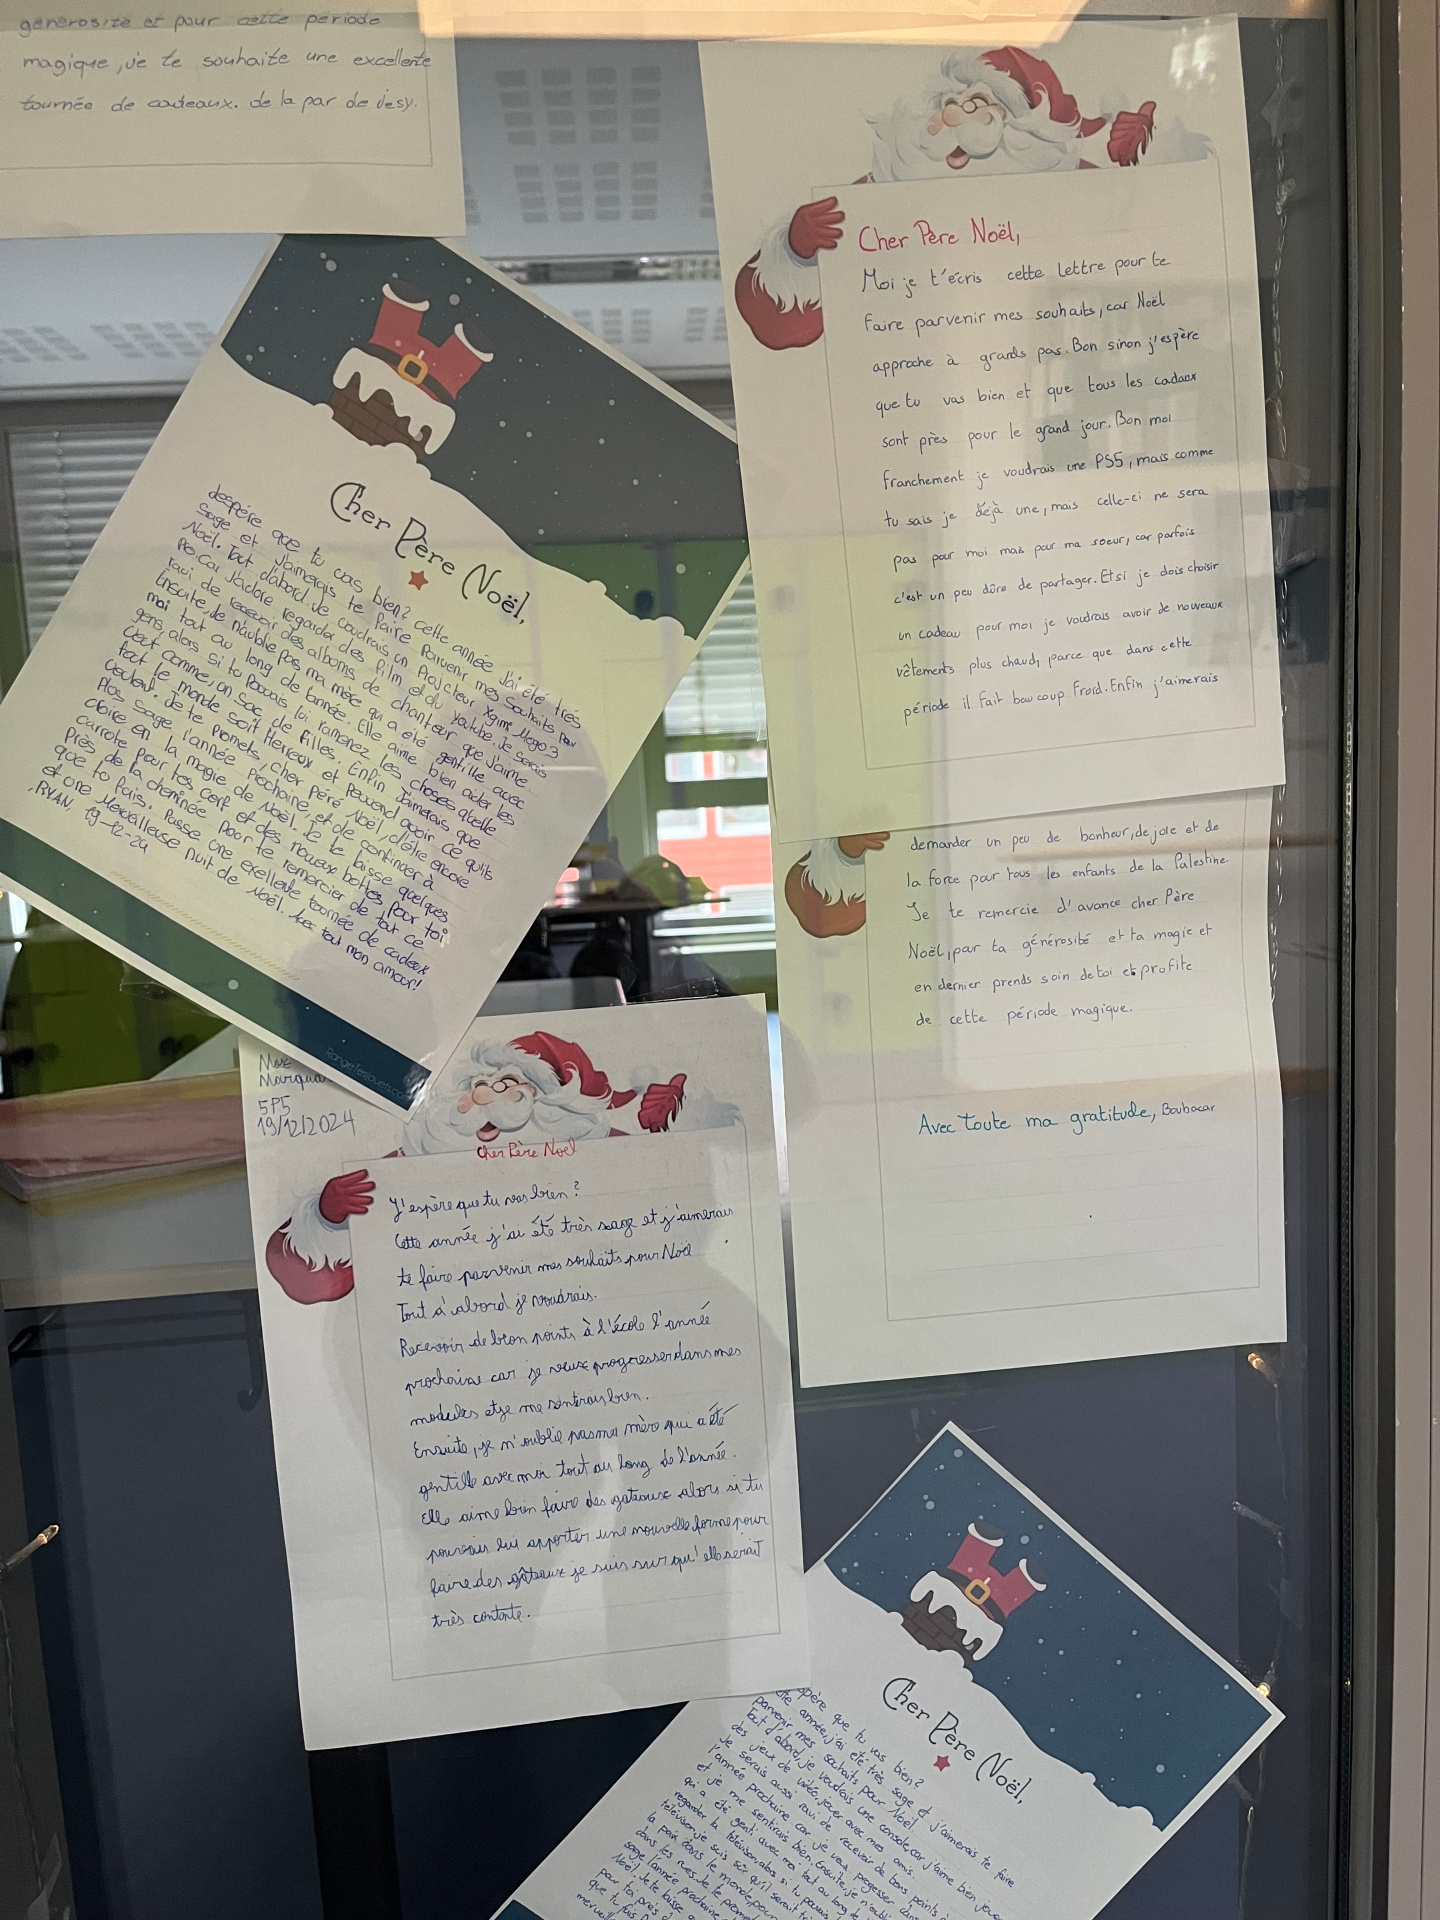 générosité et pour cette période
magique, je te souhaite une excellente
tournée de cadeaux. de la par de Jesy.
Cher Père Noël,
Moi je t'écris cette lettre pour te
faire parvenir mes souhaits, car Noël
approche à grands pas. Bon sinon j'espère
que tu vas bien et que tous les cadaux
sont près pour le grand jour. Bon moi
franchement je voudrais une PS5, mais comme
tu sais je déjà une, mais celle-ci ne sera
pas pour moi mais pour ma soeur, car parfois
c'est un peu dûre de partager. Et si je dois choisir
un cadeau pour moi je voudrais avoir de nouveaux
vêtements plus chaud, parce que dans cette
période il fait baucoup froid. Enfin j'aimerais
demander un peu de bonheur, de joie et de
la force pour tous les enfants de la Palestine.
Je te remercie d'avance cher Père
Noël, par ta générosité et ta magie et
en dernier prends soin de toi et profite
de cette période magique.
Avec toute ma gratitude, Boubacar
Cher Père Noël,
despére que tu vas bien? cette année J'ai été très
sage et J'aimerais te faire Parvenir mes souhaits pour
Noël. Tout d'abord, Je voudrais un Projcteur Xgimi Mogo 3
Pro car J'adore regarder des film et du Youtube. Je serais
ravi de recevoir des albums de chanteur que J'aime.
Ensuite, Je n'oublie pas ma mère qui a été gentille avec
moi tout au long de l'année. Elle aime bien aider les
gens, alors si tu Pouvais lui ramenez les choses qu'elle
veut comme, un sac de filles. Enfin J'aimerais que
tout le monde soit Hereux et Peuvend avoir ce qu'ils
veulent. Je te promets, cher Pére Noël, d'être encore
Plus sage l'année Prochaine, et de continuer à
croire en la magie de Noël. Je te laisse quelques
carrote pour tes cerf et des nouveux bottes pour toi
Près de la cheminée Pour te remercier de tout ce
que tu fais. Passe une exellente tournée de cadeux
et une Merveilleuse nuit de Noël. Avec tout mon amour!
,RYAN, 19-12-24
RangeTesJouets.co
Max
Marqua
5P5
19/12/2024
Cher Père Noël
J'espère que tu vas bien?
Cette année j'ai été très sage et j'aimerais
te faire parvenir mes souhaits pour Noël
Tout d'abord je voudrais.
Recevoir de bon points à l'école l'année
prochaine car je veux progresser dans mes
modules et je me sentirais bien.
Ensuite, je n'oublie pas ma mère qui a été
gentille avec moi tout au long de l'année.
Elle aime bien faire des gateaux alors si tu
pouvais lui apporter une nouvelle forme pour
faire des gâteaux je suis sur qu'elle serait
très contente.
Cher Père Noël,
père que tu vas bien?
année, j'ai été très sage et j'aimerais te faire
parvenir mes souhaits pour Noël
Tout d'abord, je voudrais une console, car j'aime bien jouer
des jeux de vidéo, jouer avec mes amis.
Je serais aussi ravi de recevoir de bons points
l'année prochaine car je veux progresser dans
et je me sentirais bien. Ensuite, je n'oubli
qui a été genti avec moi tout au long de
regarder la télévison, alors si tu pouvais
télévison, je suis sûr qu'il serait
la paix dans le monde, pour
dans les rues. Je te prome
sage l'année prochaine
Noël. Je te laisse
pour toi, près d
que tu fais.
merveill